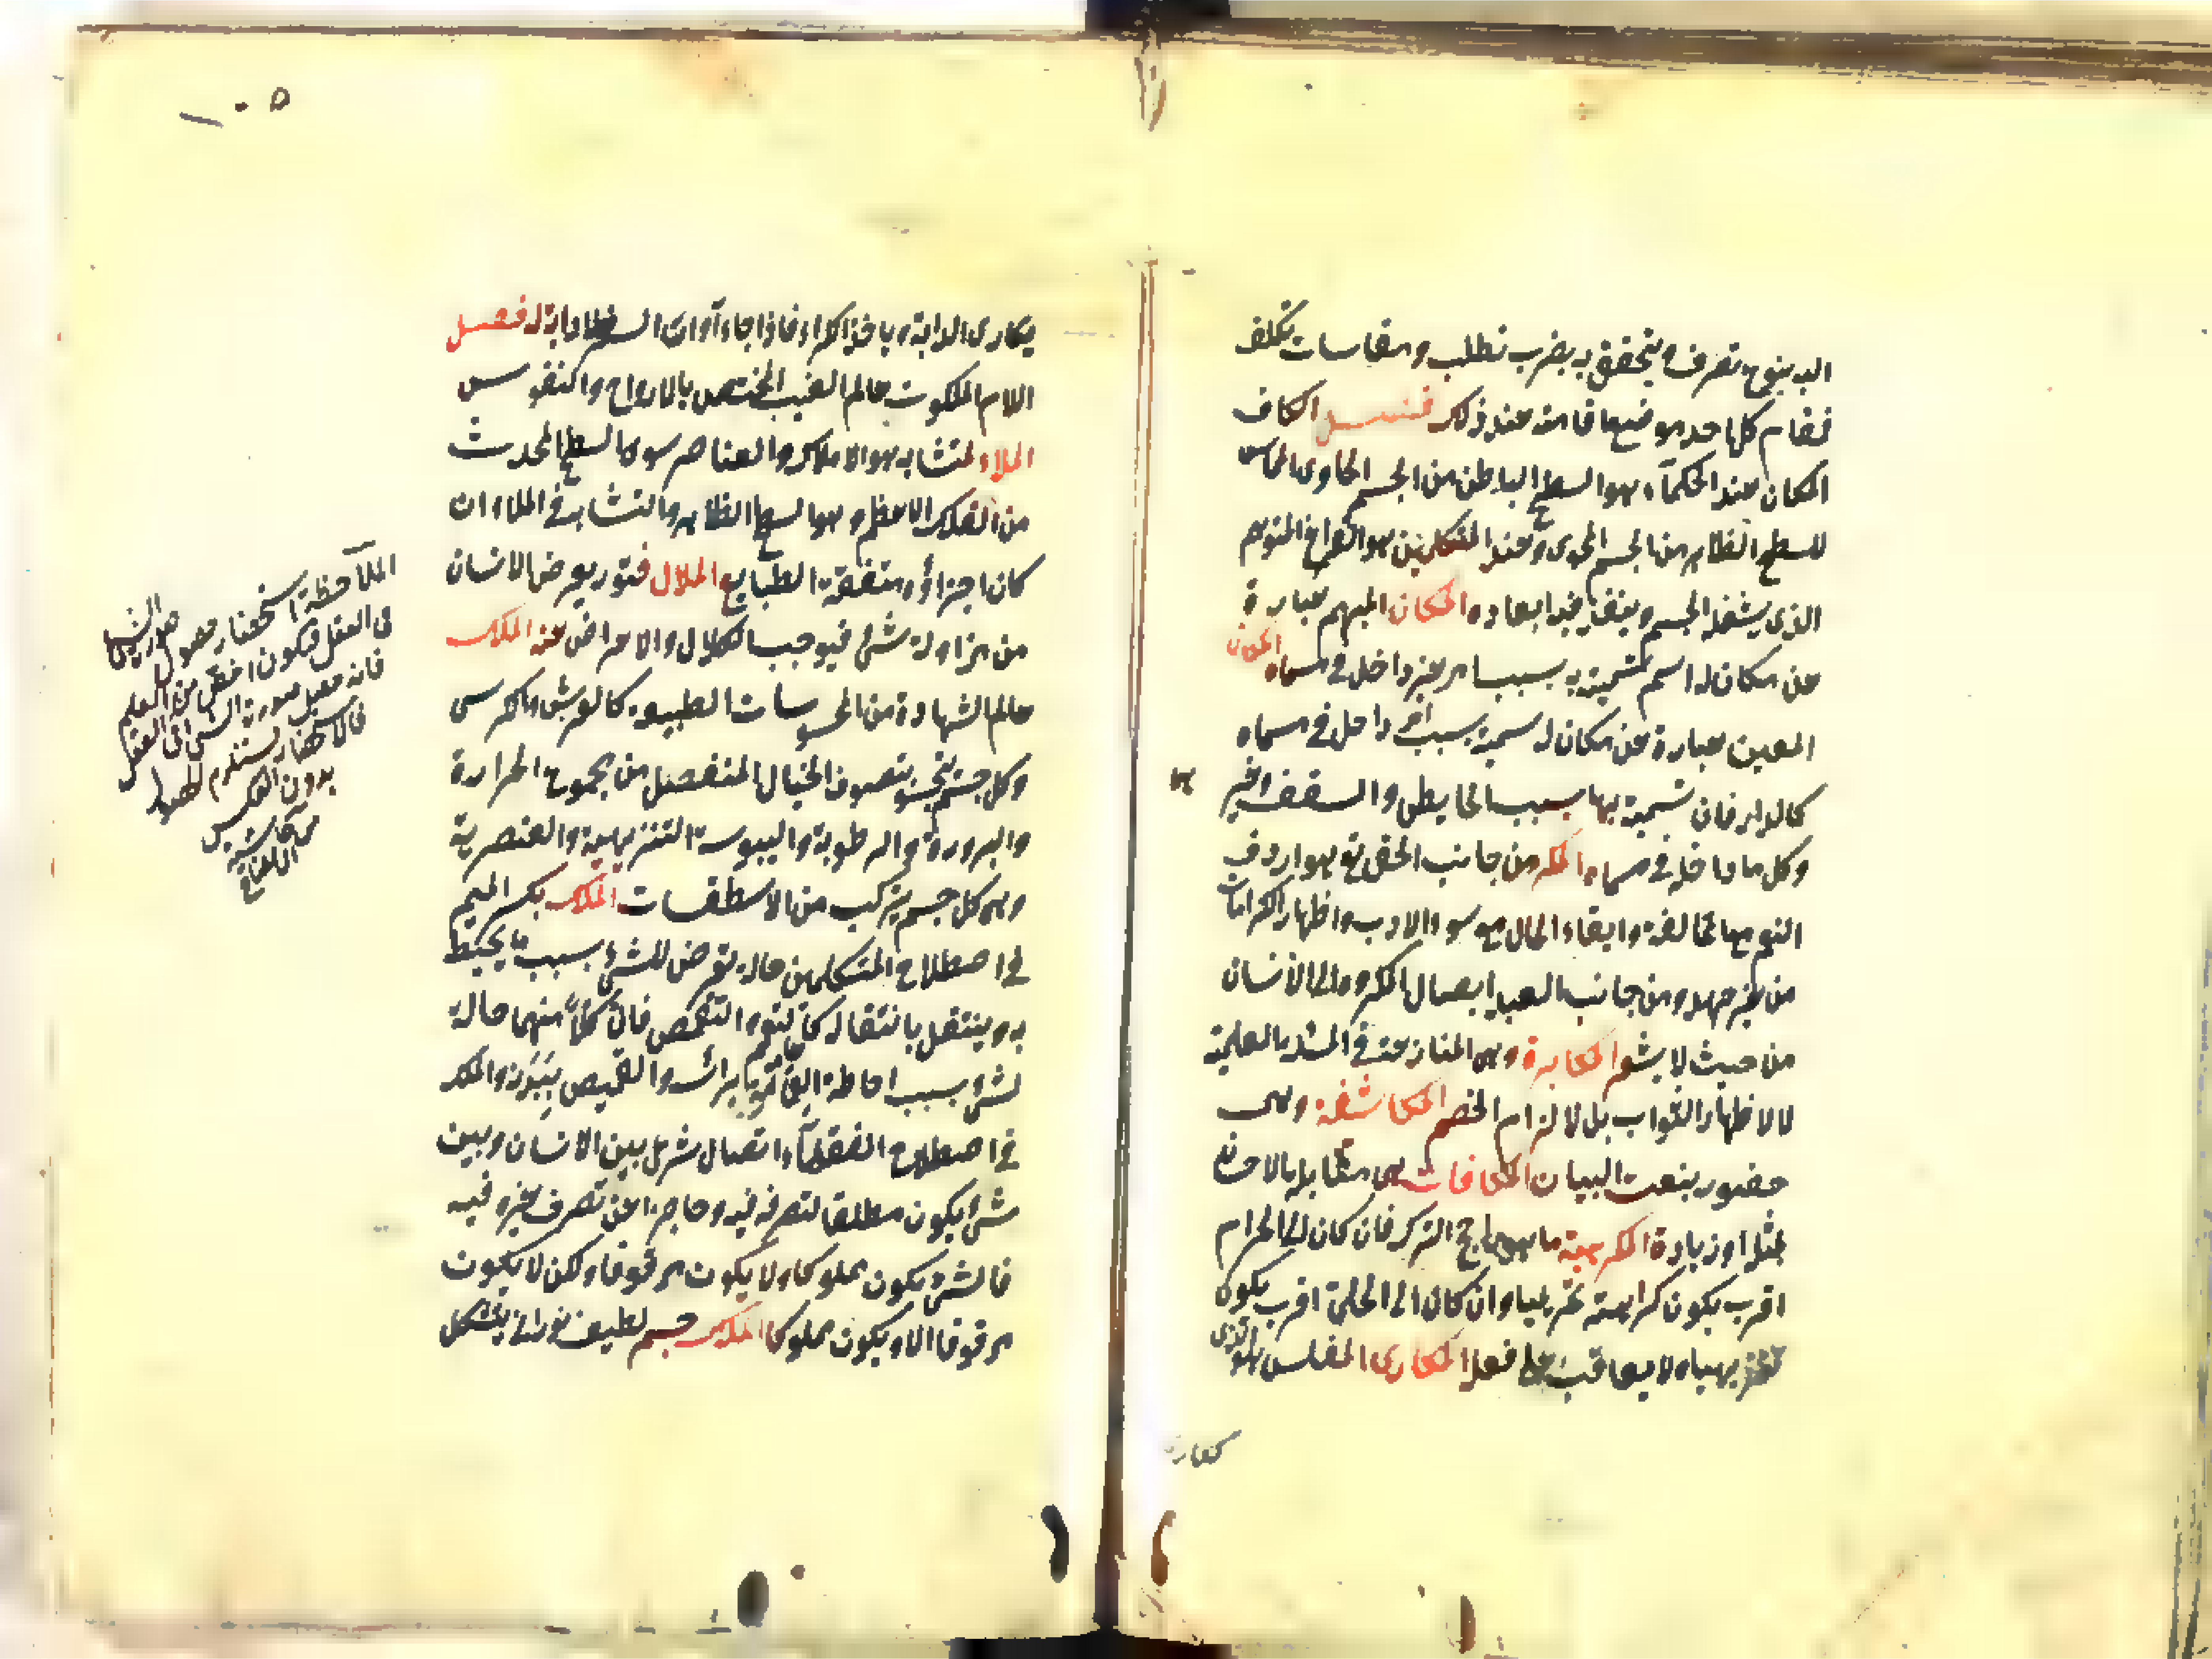 اليه بنوع تصرف ويتحقق به بضرب تطلب ومقاسات تكلف
فمقام كل احد موضع اقامته عند ذلك فصل الكاف
المكان عند الحكمآء هو السطح الباطن من الجسم الحاوى المماس
للسطح الظاهر من الجسم المحوى وعند المتكلمين هو الفراغ المتوهم
الذى يشغله الجسم وينفذ فيه ابعاده المكان المبهم عبارة
عن مكان له اسم تسميته به بسبب امر غير داخل فى مسماه المكان
المعين عبارة عن مكان له سمية بسبب امر داخل فى مسماه
كالدار فان تسميته بها بسبب الحايط والسقف وغير
وكل ما داخلة فى مسماه المكر من جانب الحق تع هو ارداف
النعم مع المخالفة وابقاء الحال مع سوء الادب واظهار الكرامات
من غير جهد ومن جانب العبد ايصال المكروه الى الانسان
من حيث لا يشعر المكابرة وهى المنازعة فى المسئلة العلمية
لا لاظهار الثواب بل لالزام الخصم المكاشفة وهى
حضور بنعت البيان المكافات هى مقابلة الاحسان
بمثله او زيادة المكرهية ما هو راجح الترك فان كان الى الحرام
اقرب يكون كراهته تحريميا وان كان الى الحل اقرب يكون
تنزيهيا ولا يعاقب على فعله المكارى المفلس هو الذى
يكارى
يكارى الدابة وياخذ الكراء فاذا جاء آوان السفر لا دابة له فصل
اللام الملكوت عالم الغيب المختص بالارواح والنفوس
الملاء المتشابه هو الافلاك والعناصر سوى السطح المحدث
من الفلك الاعظم وهو السطح الظاهر والتشابه فى الملاء ان
كان اجزاؤه متفقة الطبايع الملال فتور يعرض الانسان
من مزاولة شئ فيوجب الكلال والاعراض عنه الملك
عالم الشهادة من المحسوسات الطبيعه كالعرش والكرسى
وكل جسم يتحسن بتصرف الخيال المنفصل من مجموع الحرارة
والبرودة والرطوبة واليبوسة التنزيهية والعنصرية
وهى كل جسم يتركب من الاسطقسات الملك بكسر الميم
فى اصطلاح المتكلمين حالة تعرض للشئ بسبب ما يحيط
به وينتقل بانتقاله كالتعمم والتقمص فان كلا منهما حالة
لشئ بسبب احاطة العمامة برأسه والقميص ببدنه والملك
فى اصطلاح الفقهآء اتصال شرعى بين الانسان وبين
شئ يكون مطلقا لتصرفه فيه وحاجزا عن تصرف غيره فيه
فالشئ يكون مملوكا ولا يكون مرقوقا ولكن لا يكون
مرقوقا الا ويكون مملوكا الملك جسم لطيف نورانى يتشكل
الملآحظة استحضار حصول صورة الشئ
فى العقل فيكون اخص من العلم
فانه حصول صورة الشئ فى العقل
فالاستحضار يستلزم الحصول
بدون العكس
من حاشية